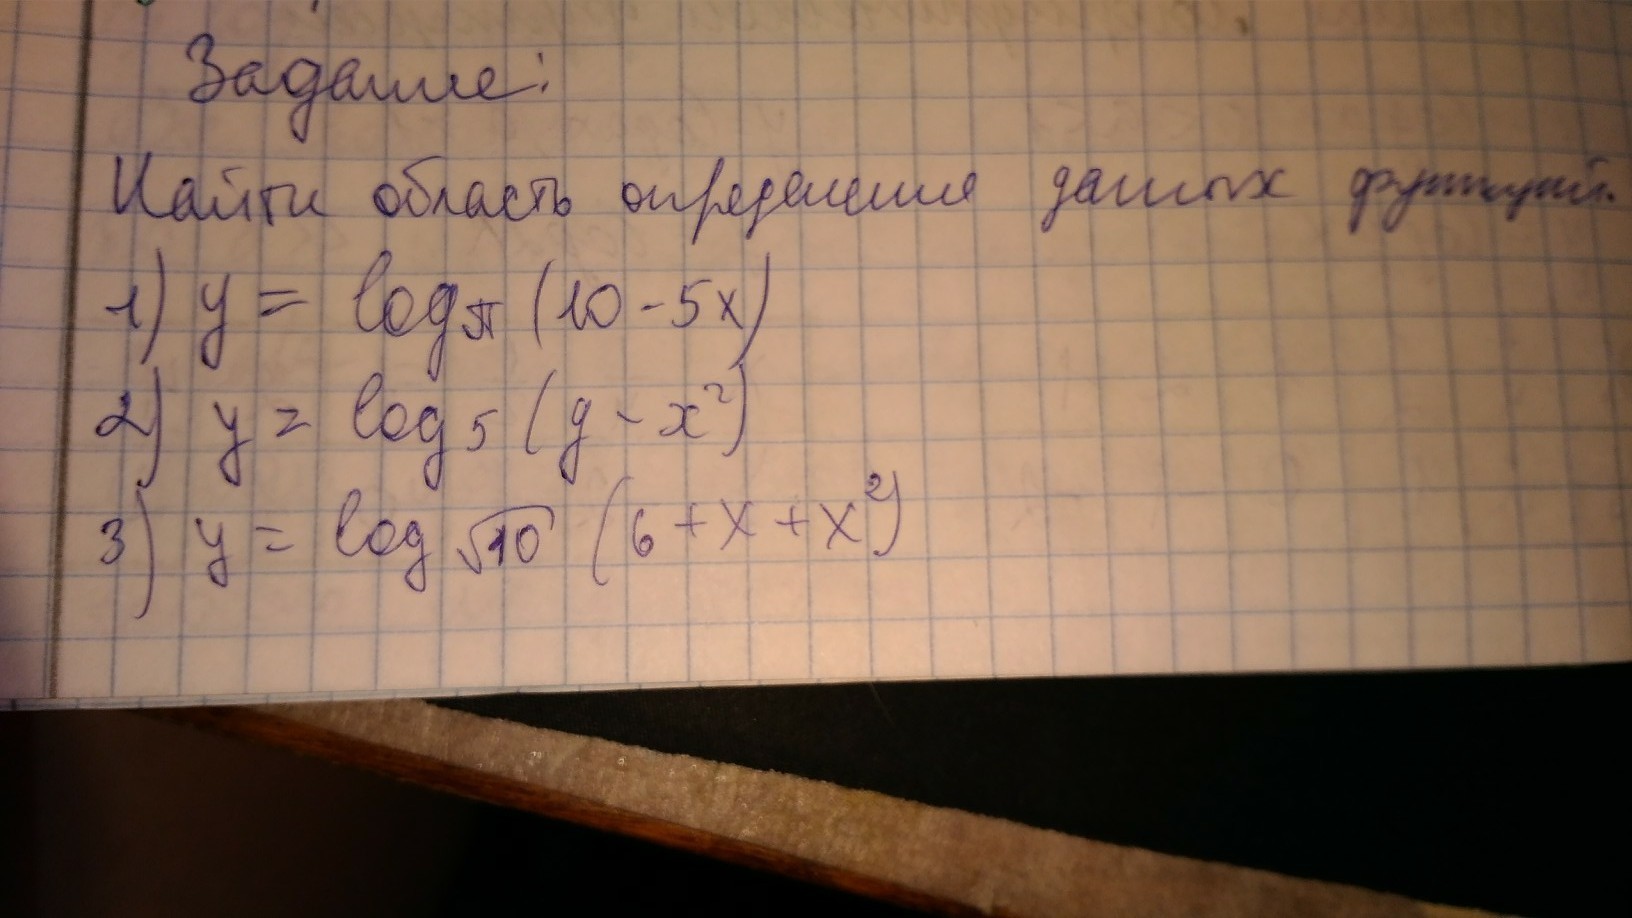 Задание:
Найти область определения данных функций.
1) y = log_π (10 - 5x)
2) y = log_5 (g - x²)
3) y = log_√10 (6 + x + x²)